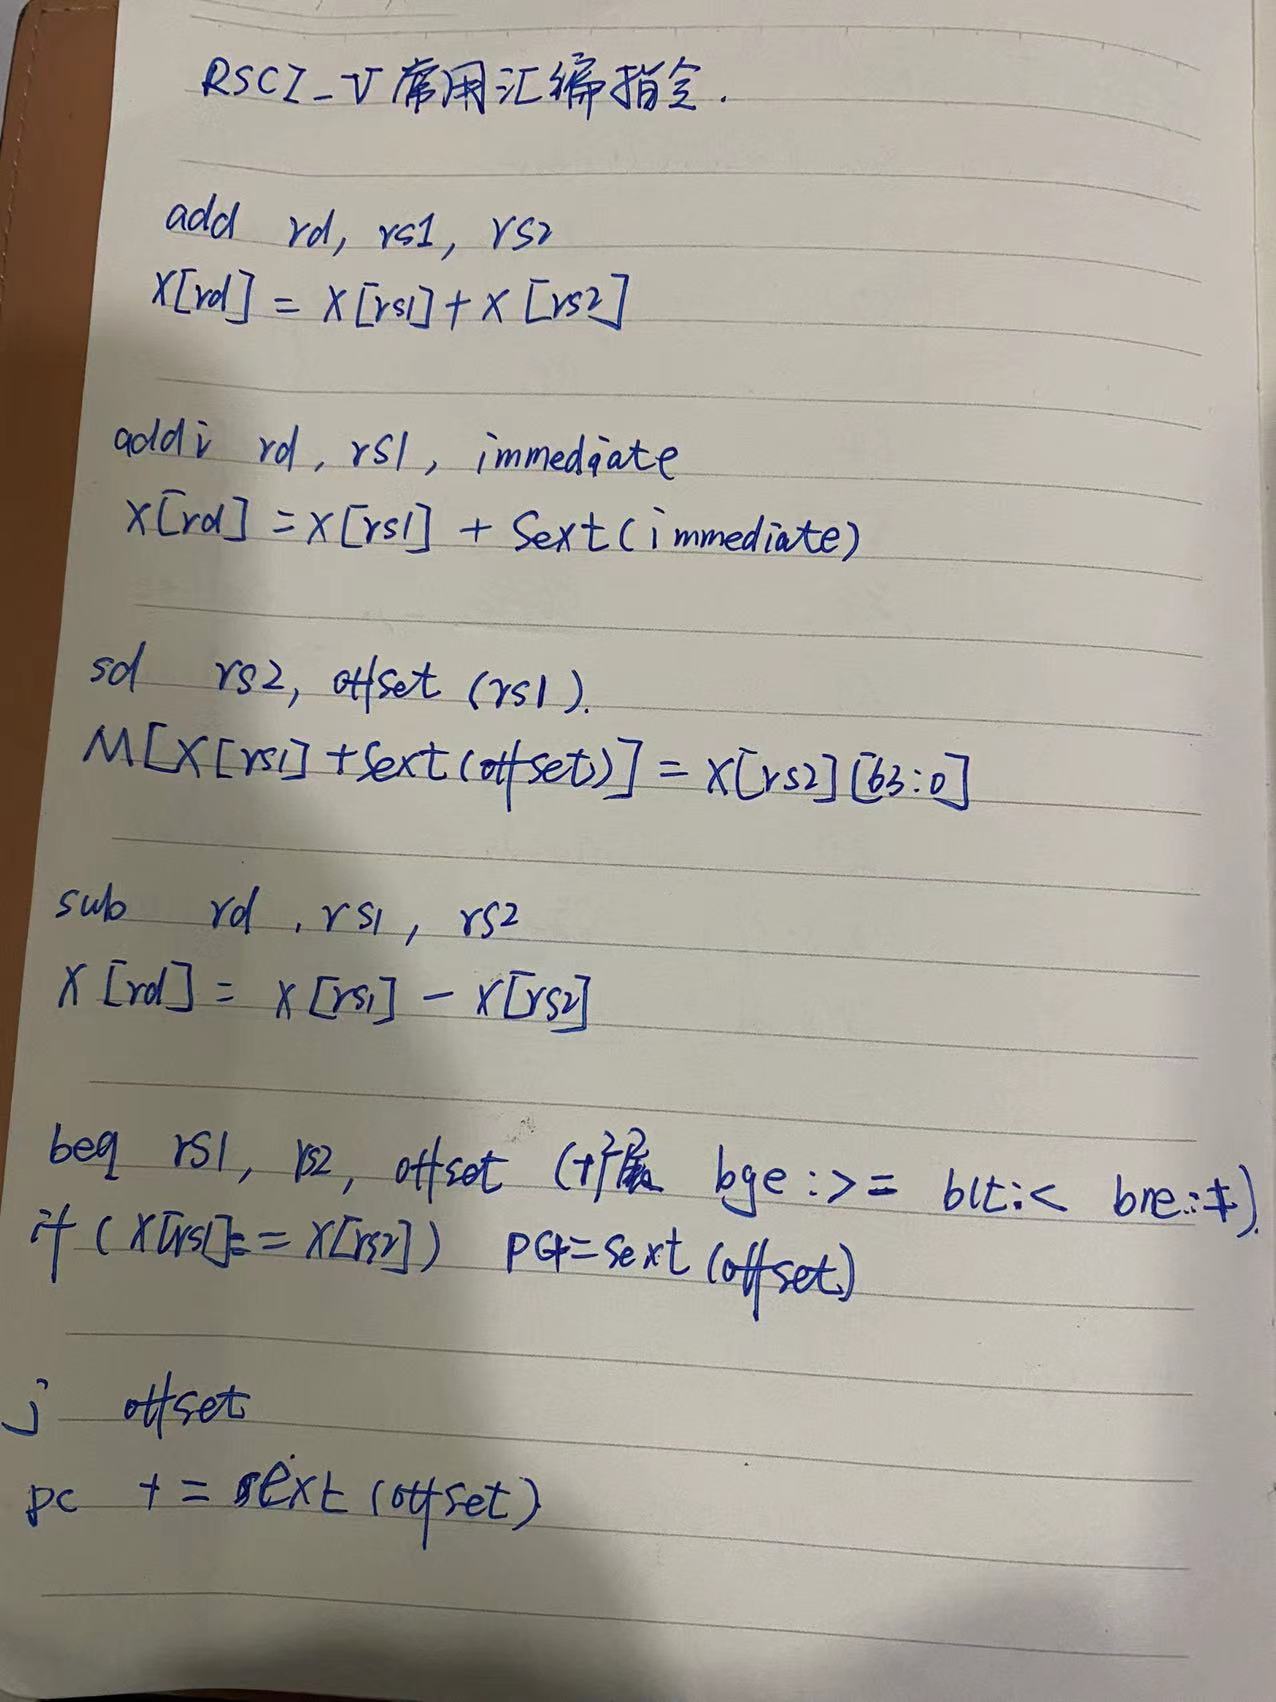 RSCI_V 常用汇编指令.
add rd, rs1, rs2
X[rd] = X[rs1] + X[rs2]
addi rd, rs1, immediate
X[rd] = X[rs1] + Sext(immediate)
sd rs2, offset (rs1).
M[X[rs1] + Sext(offset)] = X[rs2][63:0]
sub rd, rs1, rs2
X[rd] = X[rs1] - X[rs2]
beq rs1, rs2, offset (扩展 bge:>= blt:< bne:≠).
if (X[rs1]== X[rs2]) pc+=Sext(offset)
j offset
pc += sext(offset)